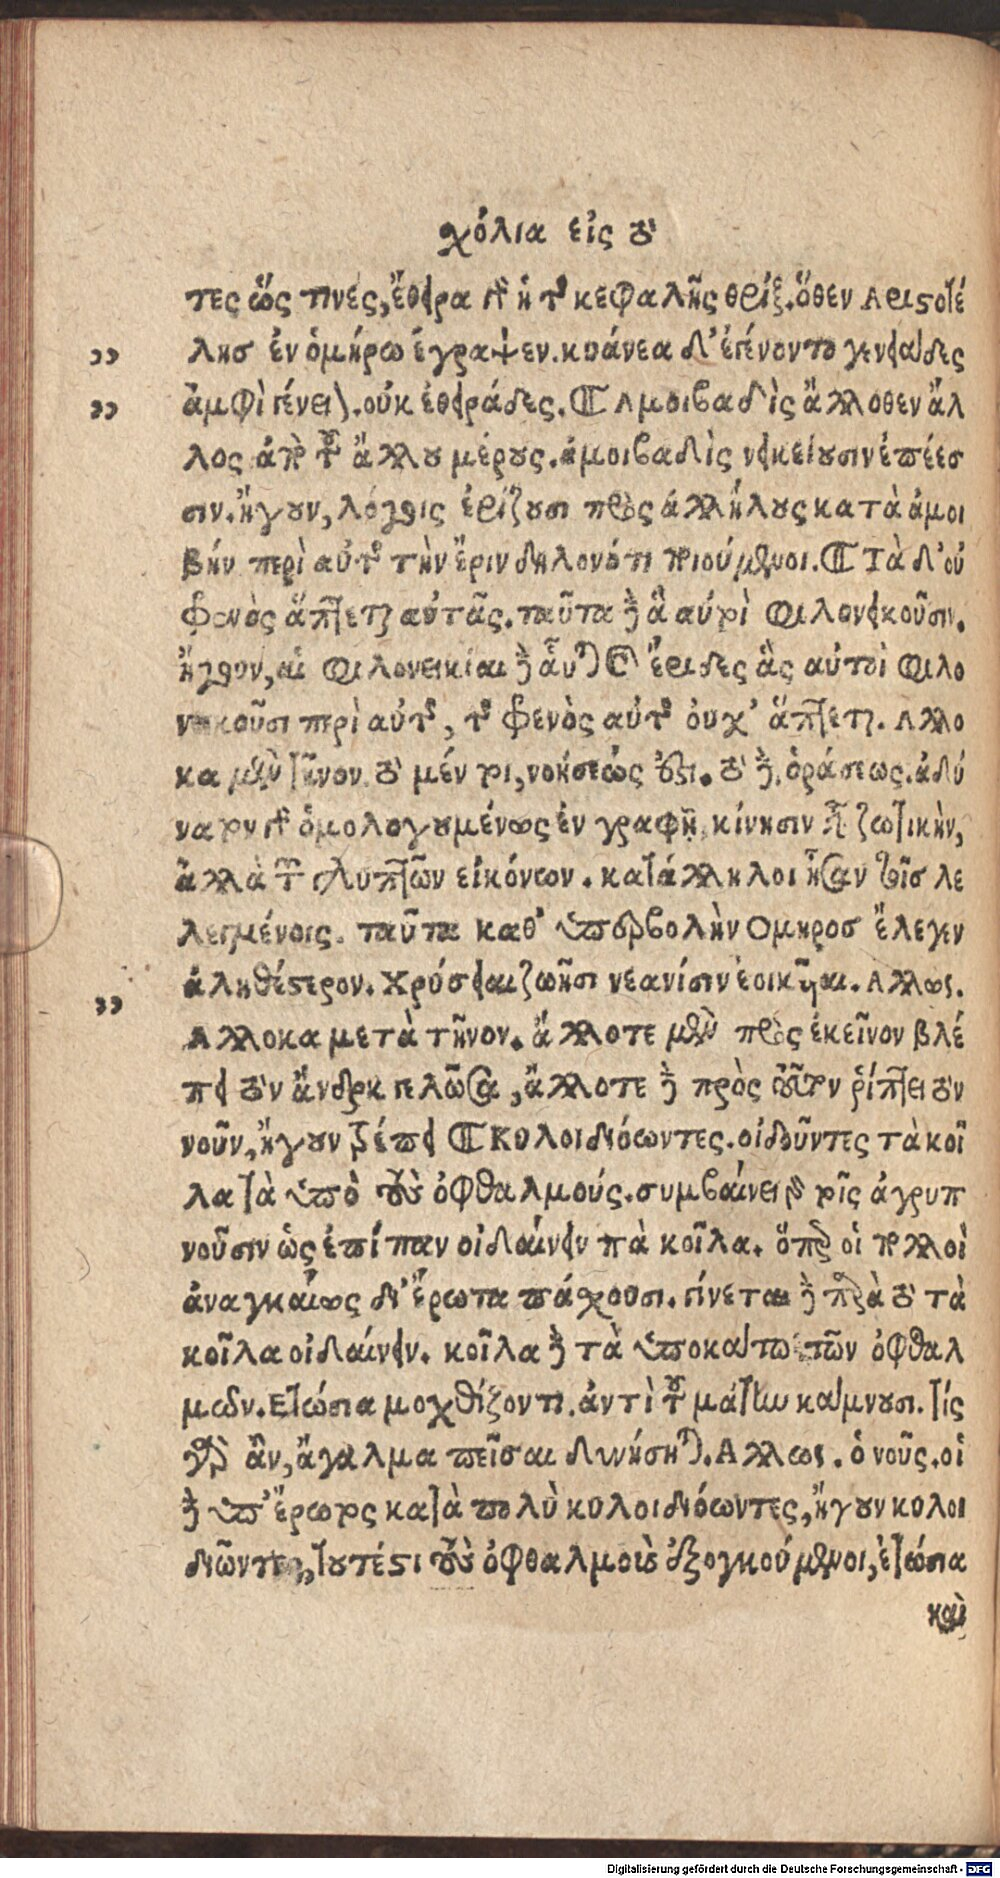 χόλια εἰς τὸ
τες ὥς τινές, ἔθειρα γὰρ ἡ τῆς κεφαλῆς θρίξ. ὅθεν Αριστοτέ
λησ ἐν ὁμήρω ἔγραψεν. κυάνεα δ' ἐγένοντο γενειάδες
ἀμφὶ γένειον. οὐκ ἐθειράδες. Αμοιβαδὶς ἄλλοθεν ἄλ
λος ἀπὸ τοῦ ἄλλου μέρους. ἀμοιβαδὶς νεικείουσιν ἐπέεσ
σιν. ἤγουν, λόγοις ἐρίζουσι πρὸς ἀλλήλους κατὰ ἀμοι
βήν περὶ αὐτῆς τὴν ἔριν δηλονότι ποιούμενοι. Τὰ δ' οὐ
φρενὸς ἅπτεται αὐτᾶς. ταῦτα δὲ ἃ αὐτοὶ φιλονεικοῦσιν.
ἤγουν, αἱ φιλονεικίαι δὲ αὗται καὶ ἔριδες ἃς αὐτοὶ φιλο
νεικοῦσι περὶ αὐτῆς, τῆς φρενὸς αὐτῆς οὐχ' ἅπτεται. Αλλο
κα μὲν τῆνον. τὸ μέν τοι, νοήσεώς ἐστι. τὸ δὲ, ὁράσεως. ἀδύ
νατον γὰρ ὁμολογουμένως ἐν γραφῇ, κίνησιν εἶναι ζωτικὴν,
ἀλλὰ τῶν γλυπτῶν εἰκόνων. κατάλληλοι ἦσαν τοῖς λε
λεγμένοις. ταῦτα καθ' ὑπερβολὴν Ομηροσ ἔλεγεν
ἀληθέστερον. Χρύσειαι ζωῆσι νεανίσιν ἐοικῦιαι. Αλλως.
Αλλοκα μετὰ τῆνον. ἄλλοτε μὲν πρὸς ἐκεῖνον βλέ
πει τὸν ἄνδρα γελῶσα, ἄλλοτε δὲ πρὸς τοῦτον ῥίπτει τὸν
νοῦν, ἤγουν τρέπει Κυλοιδιόωντες. οἰδοῦντες τὰ κοῖ
λα τὰ ὑπὸ τοὺς ὀφθαλμούς. συμβαίνει γὰρ τοῖς ἀγρυπ
νοῦσιν ὡς ἐπίπαν οἰδαίνειν τὰ κοῖλα. ὅπερ οἱ πολλοὶ
ἀναγκαίως δι' ἔρωτα πάσχουσι. γίνεται δὲ παρὰ τὸ τὰ
κοῖλα οἰδαίνειν. κοῖλα δὲ τὰ ὑποκάτω τῶν ὀφθαλ
μῶν. Ετώσια μοχθίζοντι. ἀντὶ τοῦ μάτην κάμνουσι. τίς
γὰρ ἂν, ἄγαλμα πεῖσαι δυνήσηται. Αλλως. ὁ νοῦς. οἱ
δὲ ὑπ' ἔρωτος κατὰ πολὺ κυλοιδιόωντες, ἤγουν κυλοι
διῶντες, τουτέστι τοὺς ὀφθαλμοὺς ἐξογκούμενοι, ἐτώσια
καὶ
Digitalisierung gefördert durch die Deutsche Forschungsgemeinschaft - DFG